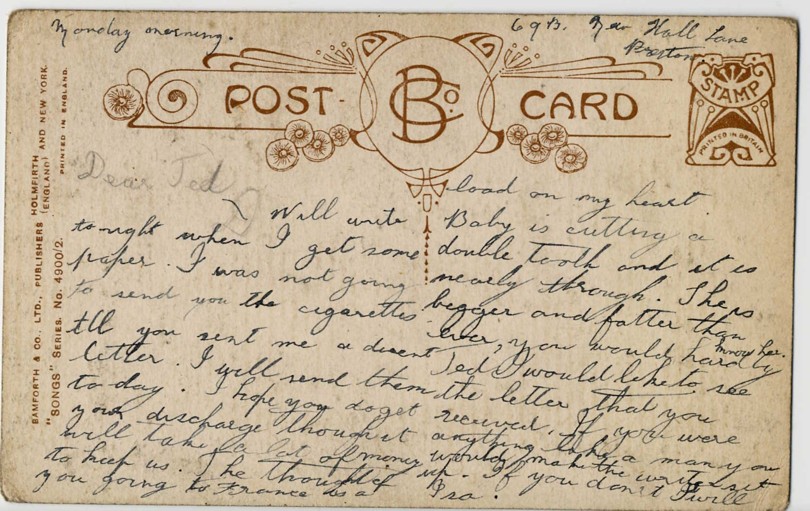 Monday morning.
69B. New Hall Lane
Preston
POST CARD
B Co.
STAMP
PRINTED IN BRITAIN
BAMFORTH & CO., LTD., PUBLISHERS HOLMFIRTH (ENGLAND) AND NEW YORK.
"SONGS" SERIES. No. 4900/2.
PRINTED IN ENGLAND.
Dear Ted
Will write
to-night when I get some
paper. I was not going
to send you the cigarettes
till you sent me a decent
letter. I will send them
to-day. I hope you do get
your discharge though it
will take a lot of money
to keep us. The thought of
you going to France is a
load on my heart.
Baby is cutting a
double tooth and it is
nearly through. She is
bigger and fatter than
ever, you would hardly
know her.
Ted I would like to see
the letter that you
received. If you were
anything like a man you
would make the writer sit
up. If you don't I will
Isa.